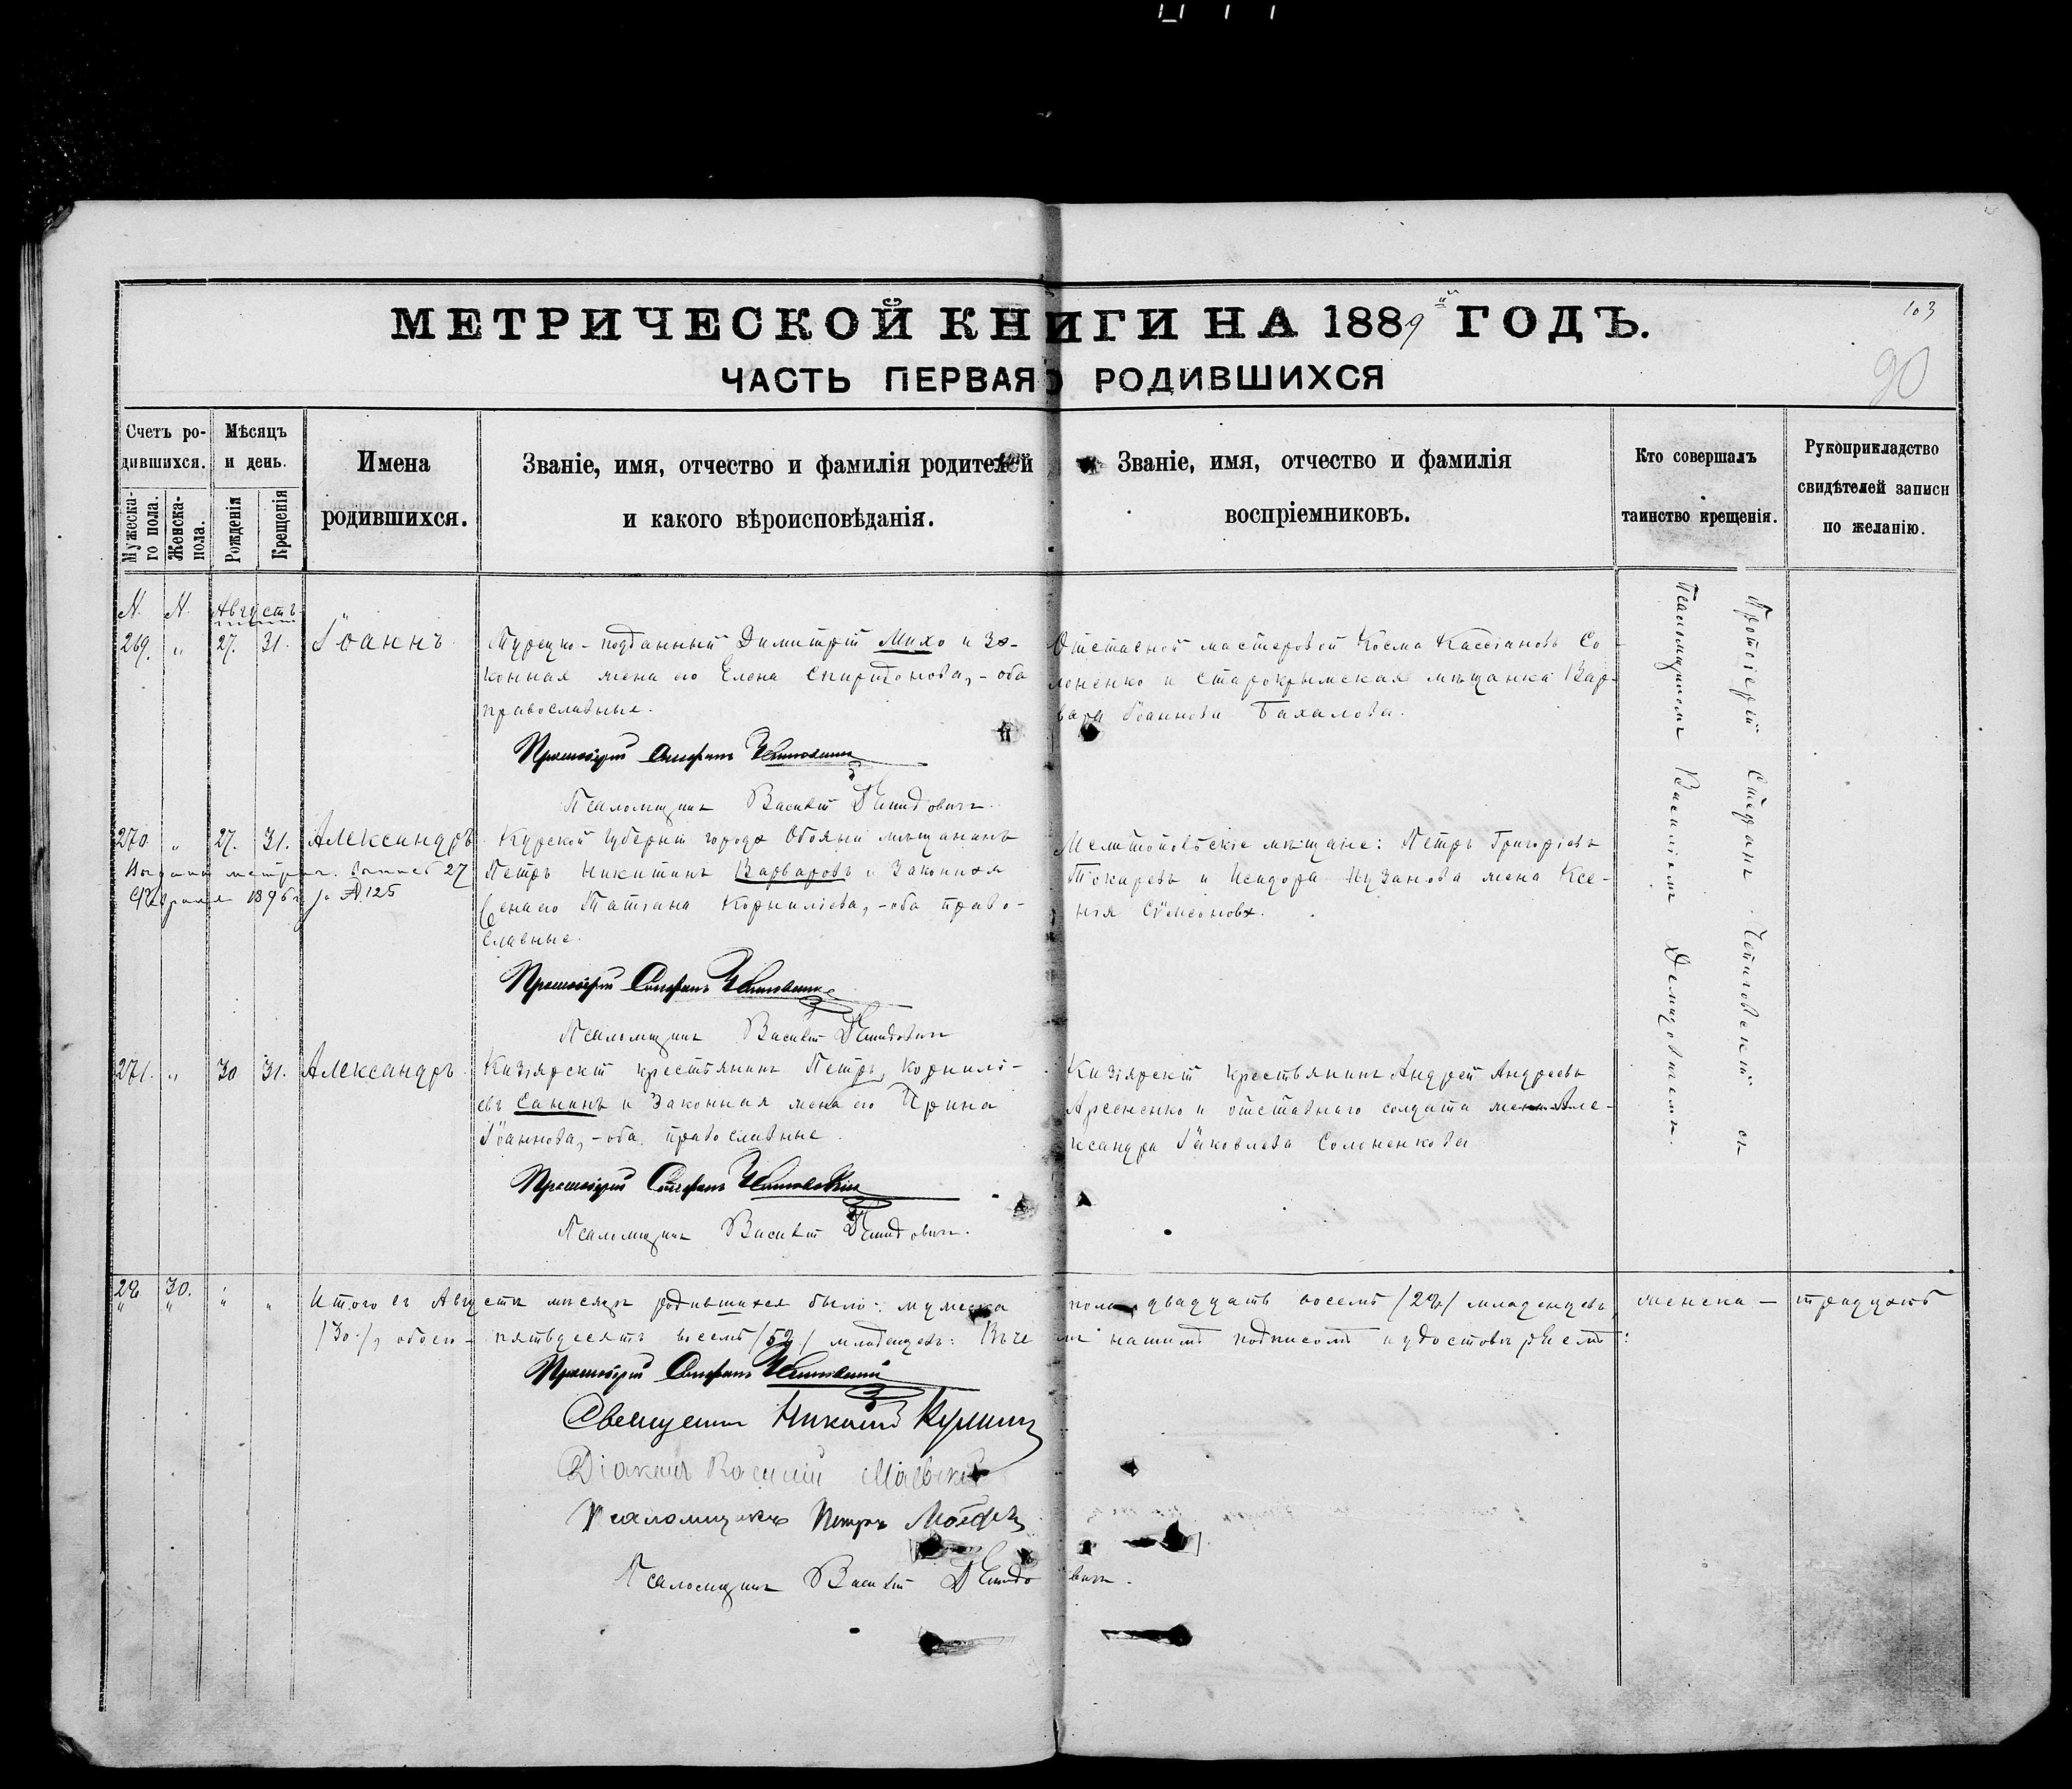 103
90
МЕТРИЧЕСКОЙ КНИГИ НА 1889й ГОДЪ.
ЧАСТЬ ПЕРВАЯ О РОДИВШИХСЯ
Счетъ родившихся.
Мужеска-
го пола.
Женска-
пола.
Мѣсяцъ
и день.
Рожденія
Крещенія
Имена
родившихся.
Званіе, имя, отчество и фамилія родителей
и какого вѣроисповѣданія.
Званіе, имя, отчество и фамилія
воспріемниковъ.
Кто совершалъ
таинство крещенія.
Рукоприкладство
свидѣтелей записи
по желанію.
N. N. Августъ
269. " 27. 31. Іоаннъ
Турецко-подданный Димитрій Михо и за-
конная жена его Елена Спиридонова, - оба
православные.
Отставной мастеровой Косма Кассіановъ Со-
лоненко и старокрымская мѣщанка Вар-
вара Іоаннова Бахалова.
Протоіерей Стефанъ
Псаломщикъ Василій Демидовичъ.
270. " 27. 31. Александръ
27
Февраля 1896 г. за № 125
Курской губерніи города Обояни мѣщанинъ
Петръ Никитинъ Варваровъ и законная
жена его Татіана Корниліева, - оба право-
славные.
Мелитопольскіе мѣщане: Петръ Григоріевъ
Токаревъ и Исидора Пузанова жена Ксе-
нія Сѵмеонова.
Протоіерей Стефанъ
Псаломщикъ Василій Демидовичъ
271. " 30 31. Александръ
Кизіярскій крестьянинъ Петръ Корниліевъ
Санинъ и законная жена его Ирина
Іоаннова, - оба православные.
Кизіярскій крестьянинъ Андрей Андреевъ
Арсененко и отставнаго солдата жена Але-
ксандра Іаковлева Солоненкова
Протоіерей Стефанъ
Псаломщикъ Василій Демидовичъ.
Протоіерей Стефанъ съ
Псаломщикомъ Василіемъ Демидовичемъ.
28. 30. " " Итого въ Августѣ мѣсяцѣ родившихся было: мужеска пола двадцать восемь /28/ младенцевъ, женска - тридцать
/30/, обоего - пятьдесятъ восемь /58/ младенцевъ: Въ чемъ нашимъ подписомъ и удостовѣряемъ:
Протоіерей Стефанъ
Священникъ Николай
Діаконъ Василій
Псаломщикъ Петръ
Псаломщикъ Василій Демидовичъ.